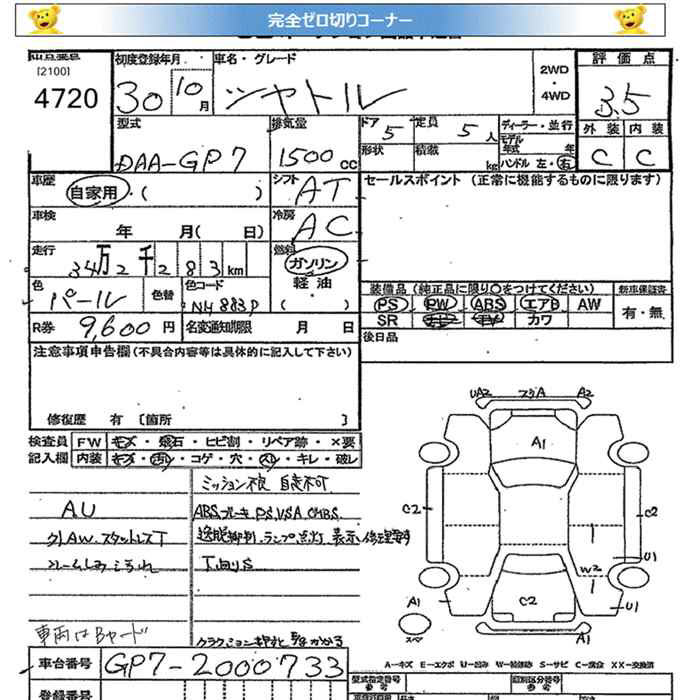 完全ゼロ切りコーナー
[2100]
4720
初度登録年月
30 10月
車名・グレード
シャトル
2WD
・
4WD
評価点
3.5
外装 内装
C C
型式
DAA-GP7
排気量
1500 cc
ドア 5
定員 5人
形状
積載 kg
ディーラー・並行
モデル年式 年
ハンドル 左・右
車歴
自家用・( )
シフト AT
セールスポイント (正常に機能するものに限ります)
車検 年 月( 日)
冷房 AC
走行 34万2千283km
燃料
ガソリン
軽油
・( )
色 パール
色替
色コード NH883P
装備品 (純正品に限り○をつけてください)
新車保証書
PS PW ABS エアB AW
SR カワ
有・無
R券 9,600円
名変通知期限 月 日
後日品
注意事項申告欄 (不具合内容等は具体的に記入して下さい)
修復歴 有 [箇所 ]
検査員 FW キズ・飛石・ヒビ割・リペア跡・×要
記入欄 内装 キズ・汚れ・コゲ・穴・スレ・キレ・破レ
ミッション不良 自走不可
AU
ABS ブレーキ P.S, VSA, CMBS,
社AW. スタットレスT
逸脱抑制, ランプ点灯, 表示 修理要す
T.回りS
車両はBヤード
車台番号 GP7-2000733
登録番号
UA2 スリA A2
A1
C2
C2
W2
U1
U1
C2
A1
A1
スペア
A-キズ E-エクボ U-凹み W-補修跡 S-サビ C-腐食 XX-交換済
型式指定番号
参考
類別区分番号
参考